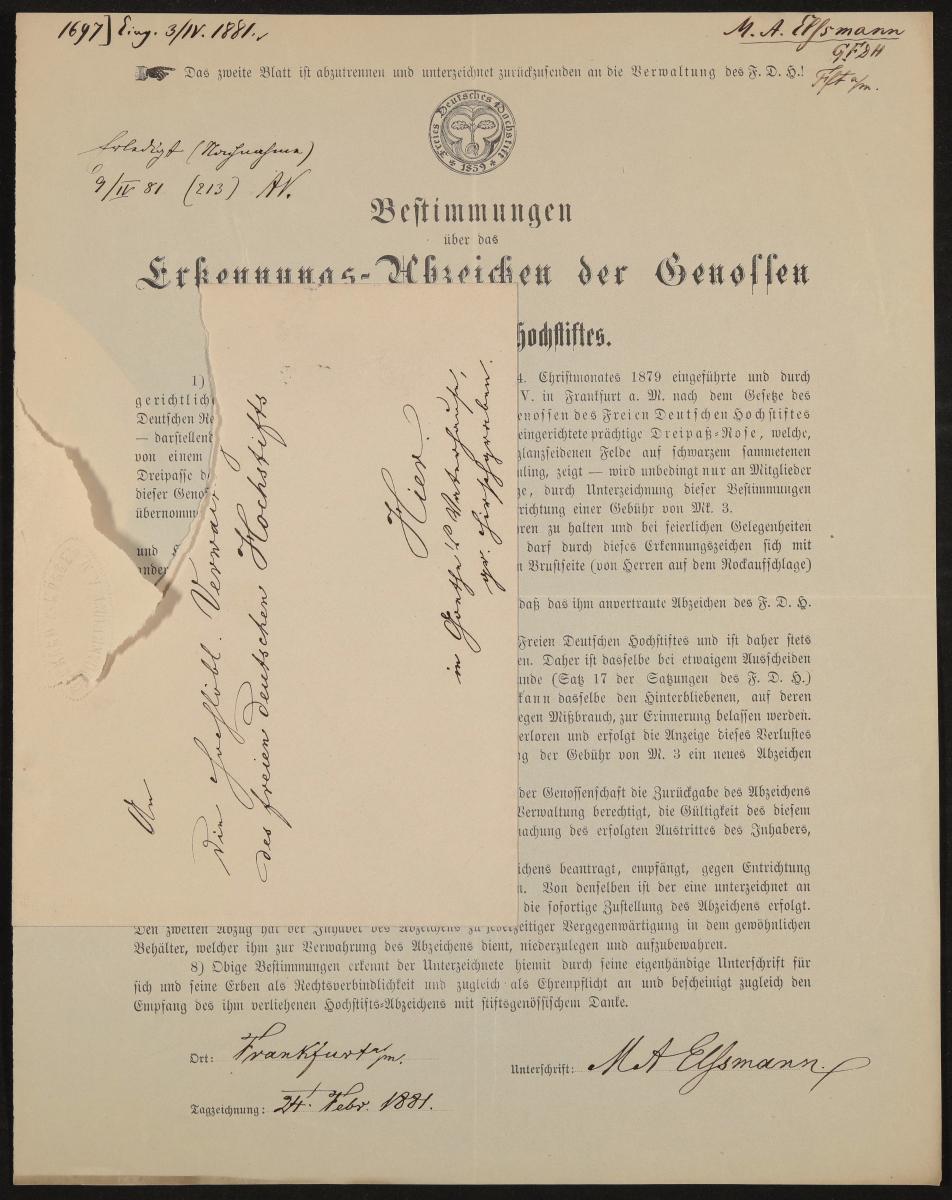 1697] Eing. 3/IV. 1881.
M. A. Elssmann
GFDH
Fft a/m.
Das zweite Blatt ist abzutrennen und unterzeichnet zurückzusenden an die Verwaltung des F. D. H.!
Freies Deutsches Hochstift
* 1859 *
Erledigt (Nachnahme)
9/IV 81 (213) AV.
Bestimmungen
über das
Erkennungs-Abzeichen der Genossen
Hochstiftes.
1) 4. Christmonates 1879 eingeführte und durch
gerichtliche V. in Frankfurt a. M. nach dem Gesetze des
Deutschen Re enossen des Freien Deutschen Hochstiftes
— darstellend eingerichtete prächtige Dreipaß-Rose, welche,
von einem glanzseidenen Felde auf schwarzem sammetenen
Dreipasse d ling, zeigt — wird unbedingt nur an Mitglieder
dieser Genos ze, durch Unterzeichnung dieser Bestimmungen
übernomm richtung einer Gebühr von Mk. 3.
ren zu halten und bei feierlichen Gelegenheiten
und darf durch dieses Erkennungszeichen sich mit
ander n Brustseite (von Herren auf dem Rockaufschlage)
daß das ihm anvertraute Abzeichen des F. D. H.
Freien Deutschen Hochstiftes und ist daher stets
en. Daher ist dasselbe bei etwaigem Ausscheiden
unde (Satz 17 der Satzungen des F. D. H.)
kann dasselbe den Hinterbliebenen, auf deren
egen Mißbrauch, zur Erinnerung belassen werden.
erloren und erfolgt die Anzeige dieses Verlustes
ng der Gebühr von M. 3 ein neues Abzeichen
der Genossenschaft die Zurückgabe des Abzeichens
Verwaltung berechtigt, die Gültigkeit des diesem
machung des erfolgten Austrittes des Inhabers,
ichens beantragt, empfängt, gegen Entrichtung
n. Von denselben ist der eine unterzeichnet an
die sofortige Zustellung des Abzeichens erfolgt.
Den zweiten Abzug hat der Inhaber des Abzeichens zu jederzeitiger Vergegenwärtigung in dem gewöhnlichen
Behälter, welcher ihm zur Verwahrung des Abzeichens dient, niederzulegen und aufzubewahren.
8) Obige Bestimmungen erkennt der Unterzeichnete hiemit durch seine eigenhändige Unterschrift für
sich und seine Erben als Rechtsverbindlichkeit und zugleich als Ehrenpflicht an und bescheinigt zugleich den
Empfang des ihm verliehenen Hochstifts-Abzeichens mit stiftsgenössischem Danke.
Ort: Frankfurt a/m.
Unterschrift: M A Elssmann.
Tagzeichnung: 24. Febr. 1881.
An
die Hochlöbl. Verwaltung
des freien deutschen Hochstifts
Hier.
in Goethe's Vaterhause,
gr. Hirschgraben.